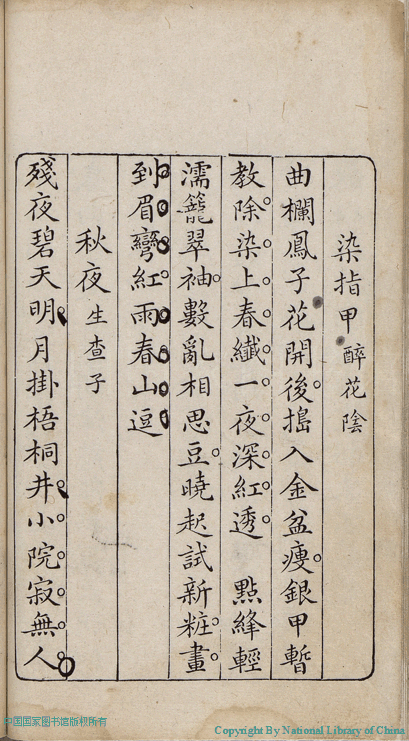 染指甲 醉花陰
曲欄鳳子花開後搗入金盆瘦銀甲暫
教除染上春纖一夜深紅透 點絳輕
濡籠翠袖數亂相思豆曉起試新粧畫
到眉彎紅雨春山逗
秋夜 生查子
殘夜碧天明月掛梧桐井小院寂無人
中国国家图书馆版权所有
Copyright By National Library of China